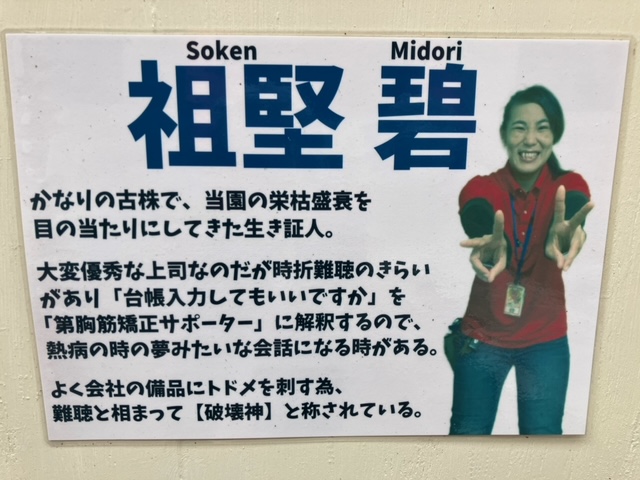 Soken Midori
祖堅 碧
かなりの古株で、当園の栄枯盛衰を
目の当たりにしてきた生き証人。
大変優秀な上司なのだが時折難聴のきらい
があり「台帳入力してもいいですか」を
「第胸筋矯正サポーター」に解釈するので、
熱病の時の夢みたいな会話になる時がある。
よく会社の備品にトドメを刺す為、
難聴と相まって【破壊神】と称されている。